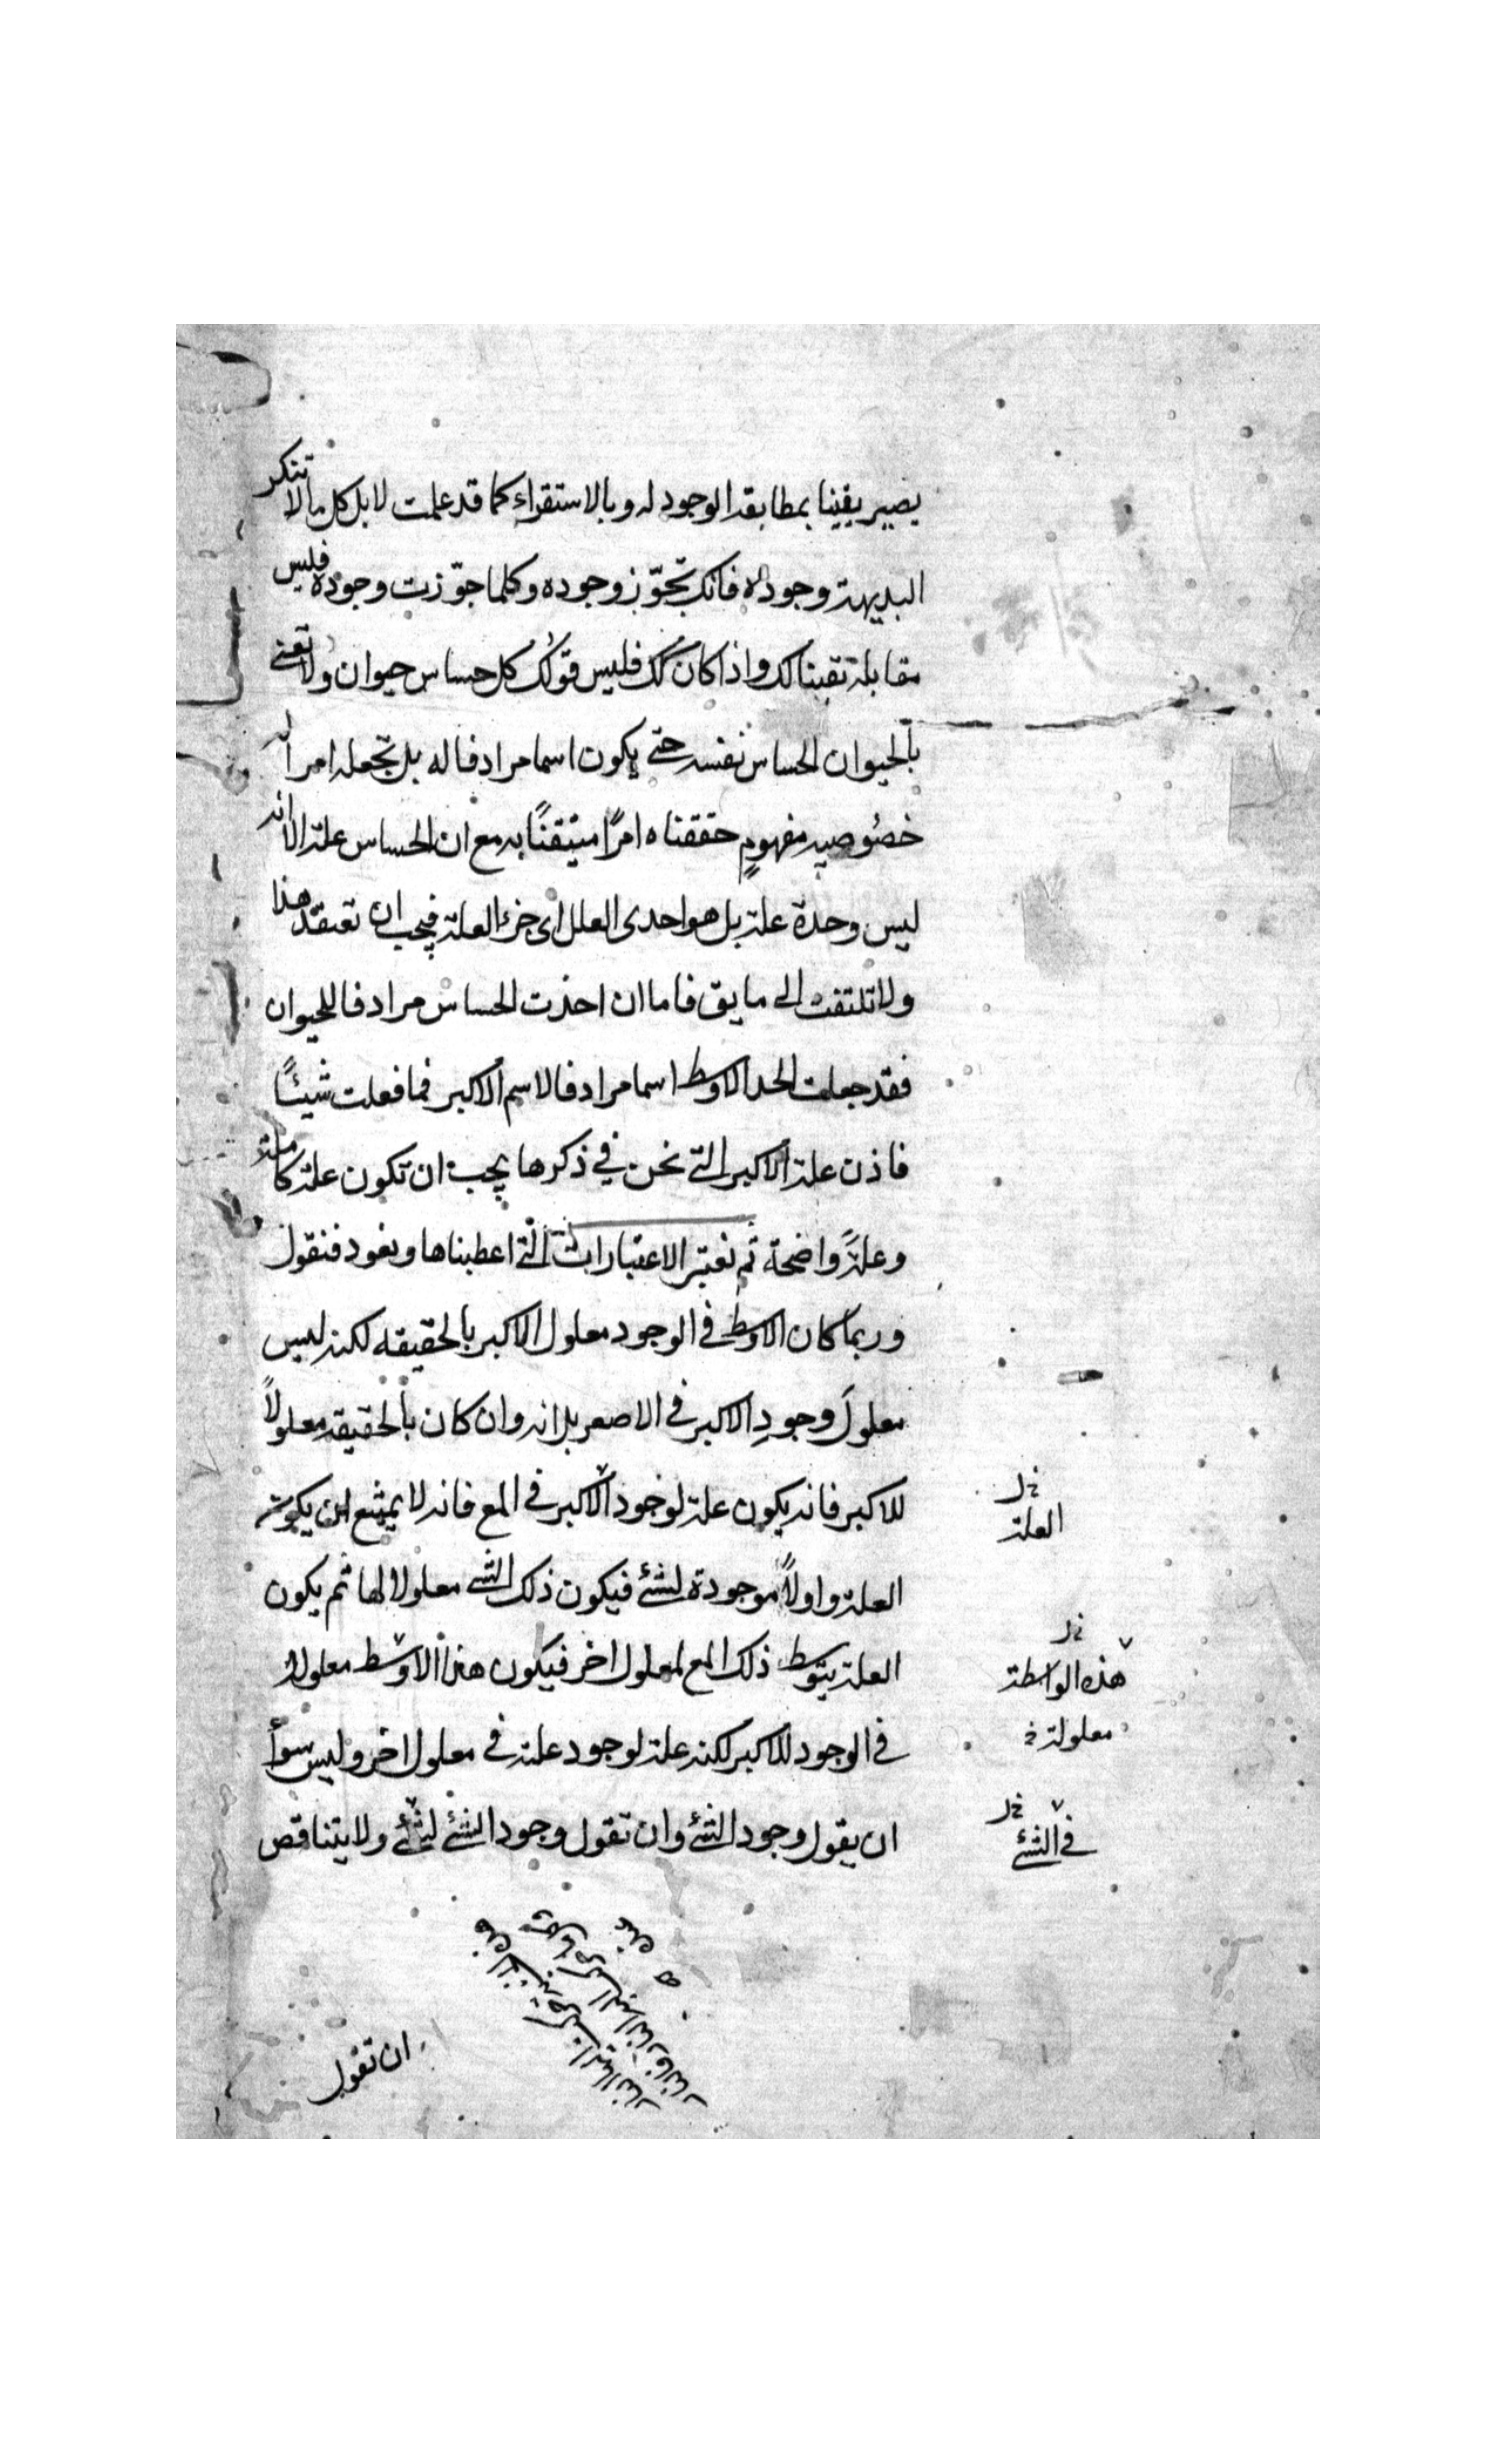 يصير يقينا بمطابقة الوجود له وبالاستقراء كما قد علمت لا بل كل ما لا تنكر
البديهة وجوده فانك تجوّز وجوده وكلما جوّزت وجوده فليس
مقابله تقينا لك واذا كان كك فليس قولك كل حساس حيوان ولا تعنى
بالحيوان الحساس نفسه حتى يكون اسما مرادفا له بل تجعله امرا له
خصوصيه مفهومٍ حققناه امرًا متيقنًا به مع ان الحساس علة الا انه
ليس وحدة علة بل هو احدى العلل اى جزء العلة فيجب ان تعتقد هذا
ولا تلتفت الى ما يق فاما ان اخذت الحساس مرادفا للحيوان
فقد جعلت الحد الاوسط اسما مرادفا لاسم الاكبر فما فعلت شيئًا
فاذن علة الاكبر التى نحن فى ذكرها يجب ان تكون علة كاملة
وعلةً واضحة ثم نعتبر الاعتبارات التى اعطيناها ونعود فنقول
وربما كان الاوسط فى الوجود معلول الاكبر بالحقيقه لكنه ليس
معلولَ وجودِ الاكبر فى الاصغر بل انه وان كان بالحقيقة معلولاً
للاكبر فانه يكون علة لوجود الاكبر فى المع فانه لا يمتنع ان يكون
العلة واولاً موجودة لشئ فيكون ذلك الشئ معلولا لها ثم يكون
العلة بتوسط ذلك المع لمعلول اخر فيكون هذا الاوسط معلولا
فى الوجود للاكبر لكنه علة لوجود علته فى معلول اخر وليس سواءً
ان يقول وجود الشئ وان تقول وجود الشئ لشئ ولا يتناقض
خ ل
العلة
خ ل
هذه الواسطة
معلولة خ
خ ل
فى الشئ
ان تقول